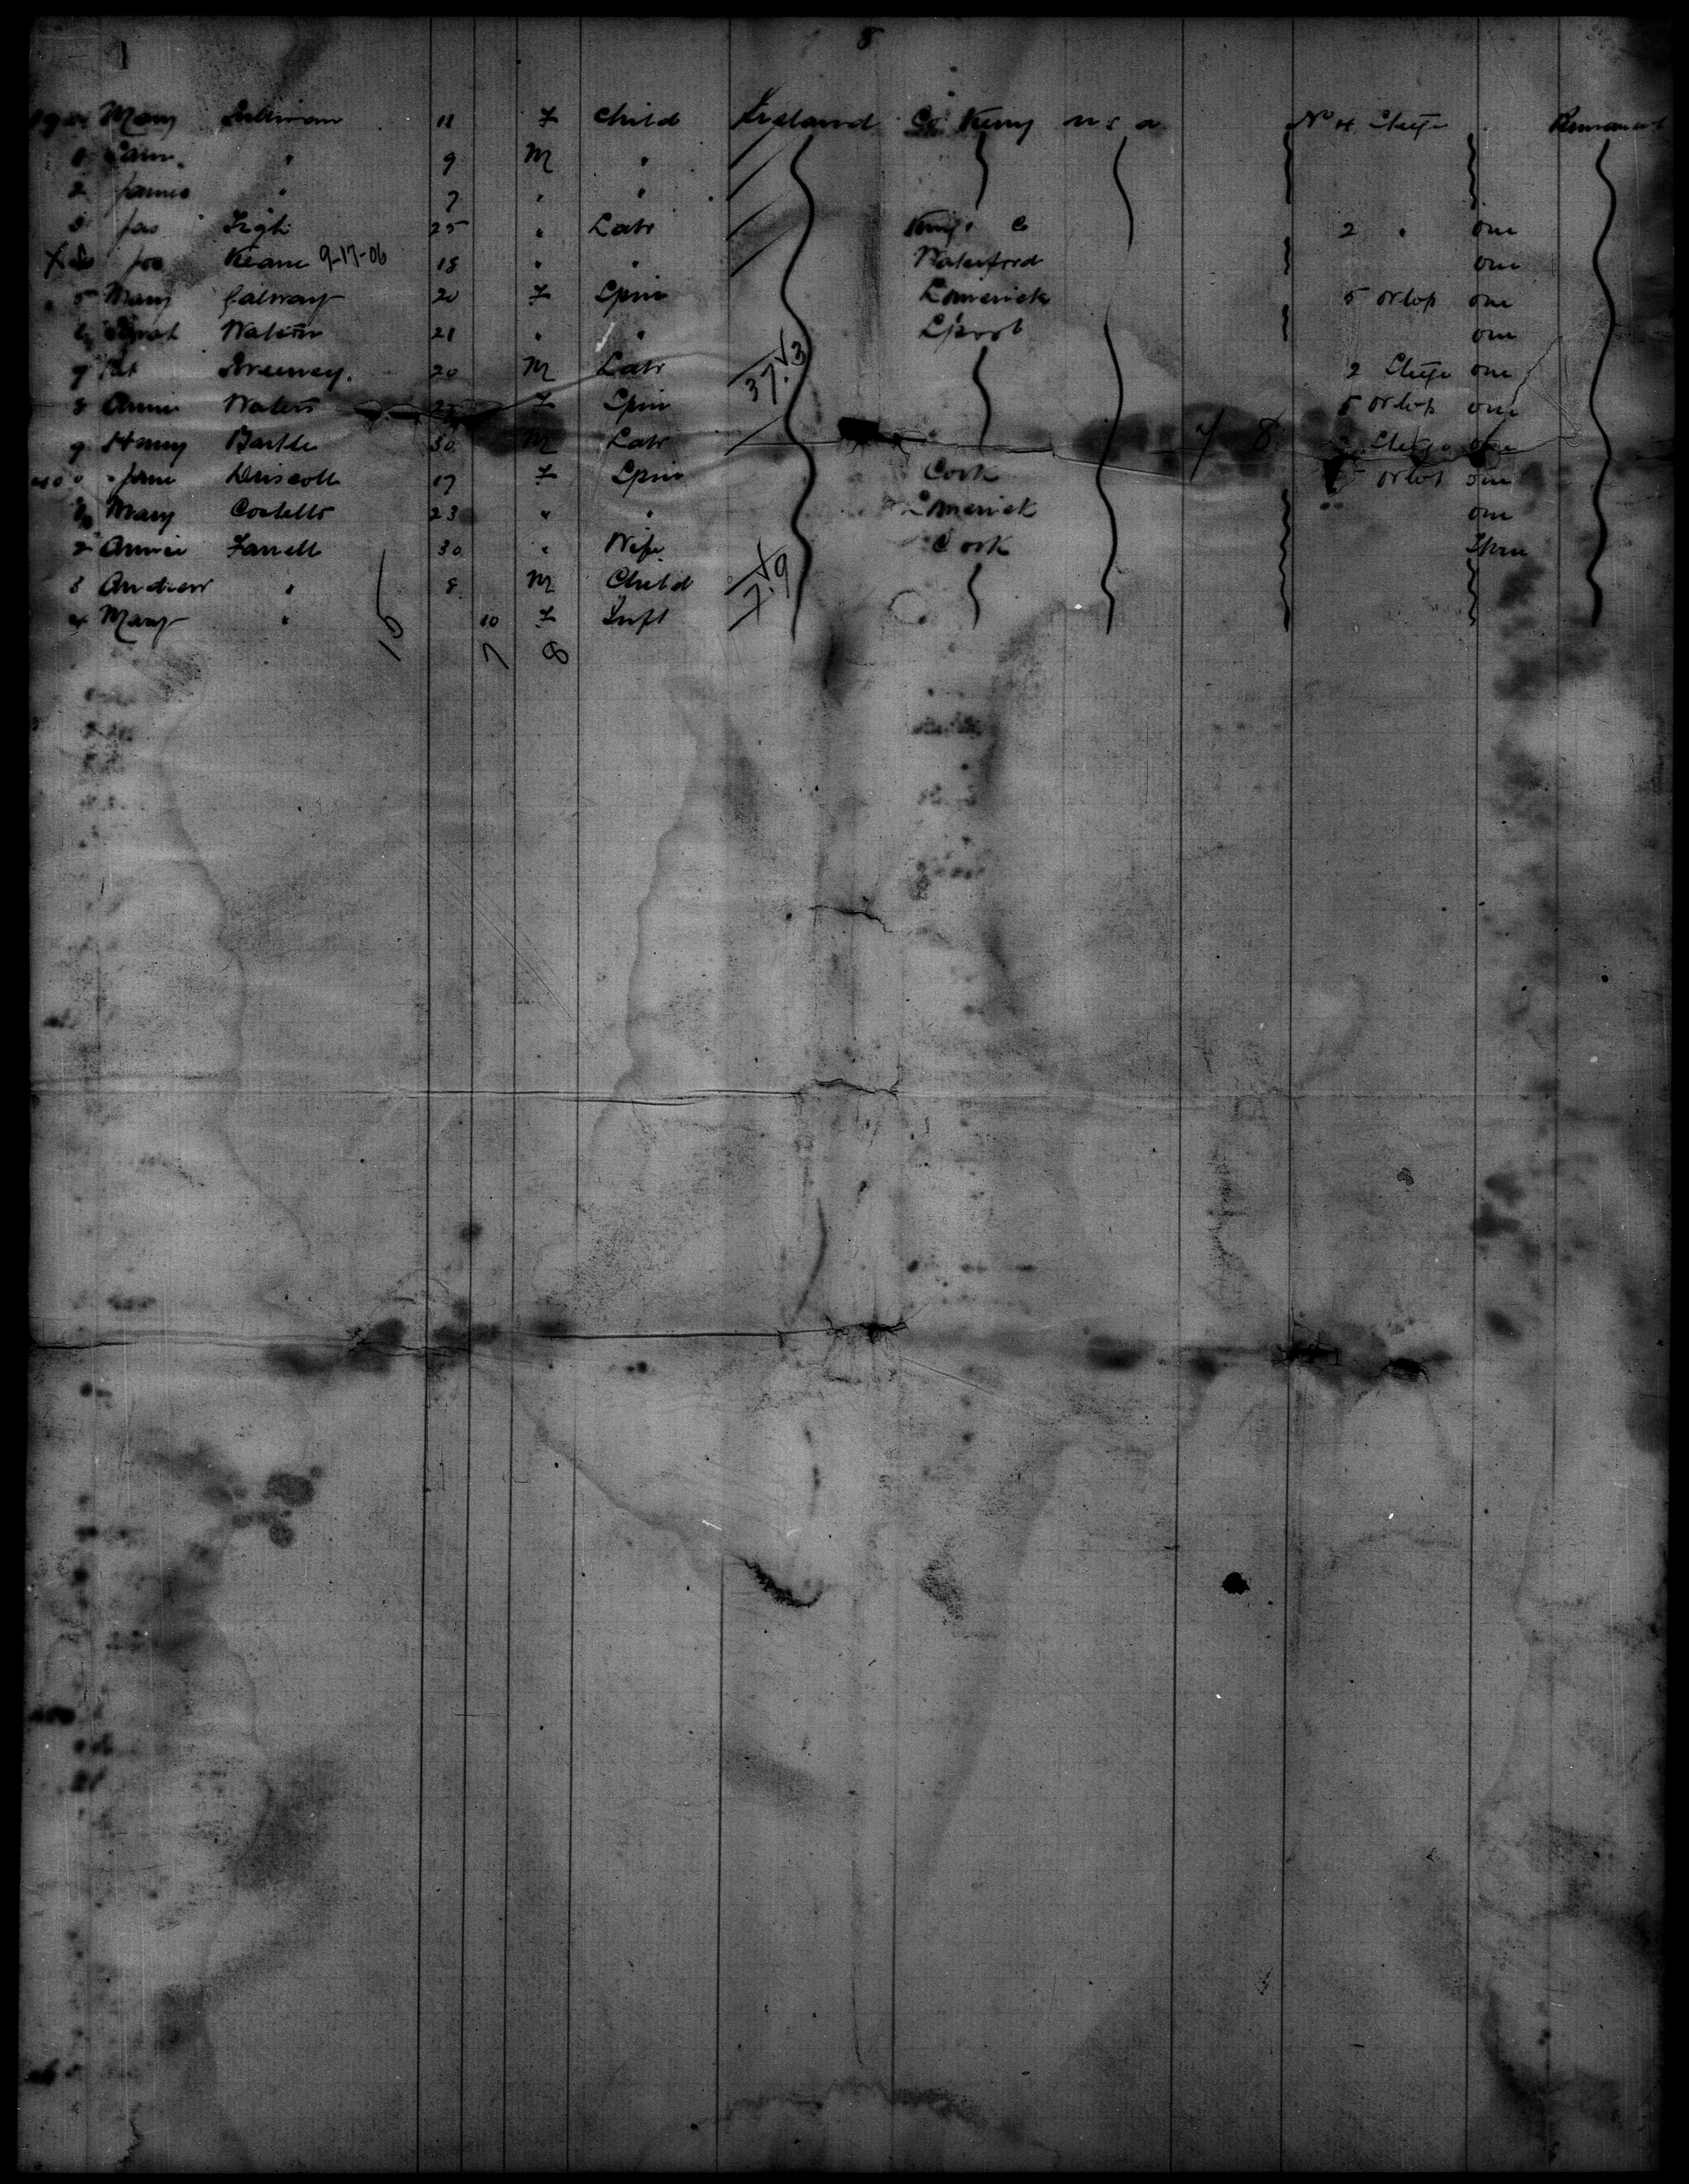 8
Mary Sullivan 11 F Child Ireland Co. Kerry U S A No 4 Stege Permanent
1 " 9 M "
2 James " 7 " "
3 Jas 25 " Labr Kings Co 2 " one
X Jos Keane 9-17-06 18 " " Waterford one
5 Mary Galway 20 F Spin Limerick 5 orlop one
Sarah Waters 21 " " L'pool one
7 Pat 20 M Labr 37.V3 2 Stege one
8 Annie Waters F Spin 5 orlop one
9 Henry Bartle 30 M Labr 8 Stege one
Jane Driscoll 17 F Spin Cork orlop one
Mary Costello 23 " " Limerick one
2 Annie Farrell 30 " Wife Cork Three
3 Andrew " 8 M Child
4 Mary " 10 F Inft
15 7 8